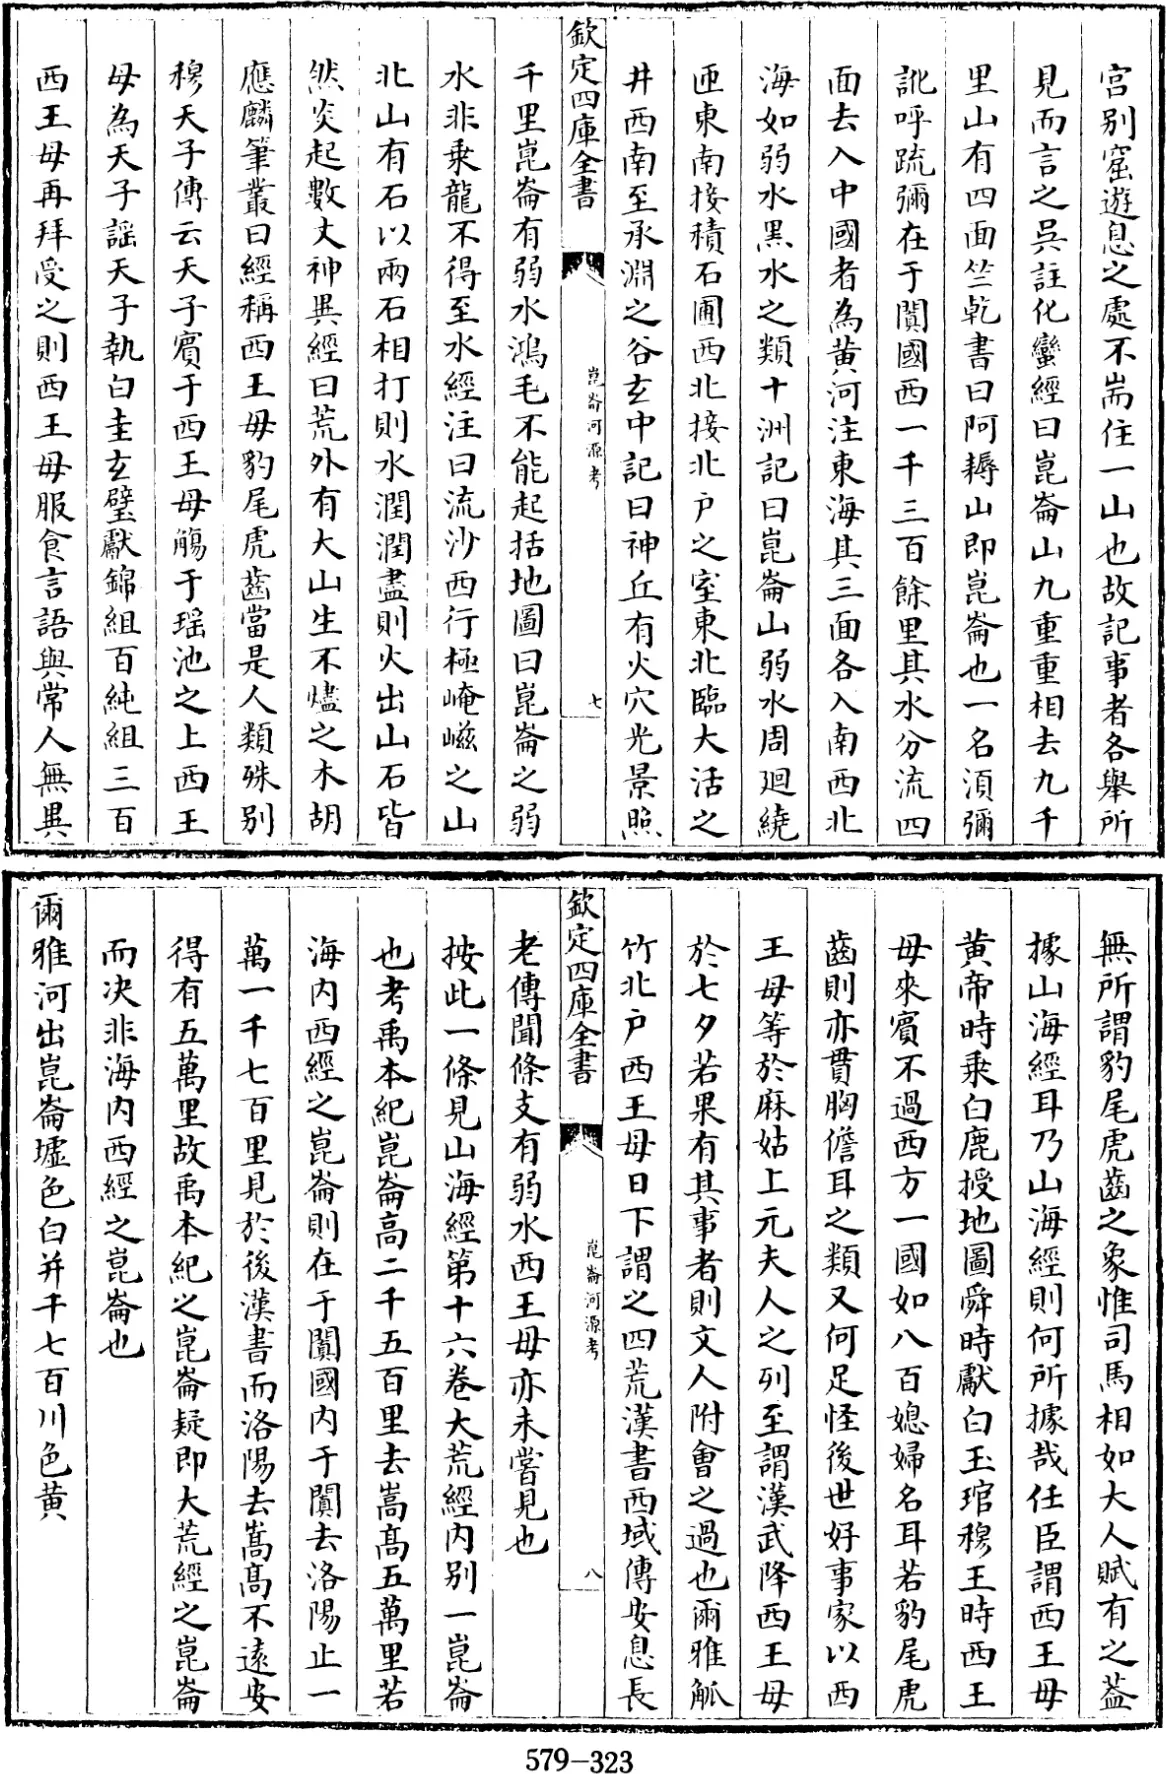 宫别窟遊息之處不耑住一山也故記事者各舉所
見而言之吳註化蠻經曰崑崙山九重重相去九千
里山有四面竺乾書曰阿耨山即崑崙也一名須彌
訛呼䟽彌在于闐國西一千三百餘里其水分流四
面去入中國者為黄河注東海其三面各入南西北
海如弱水黒水之類十洲記曰崑崙山弱水周廻繞
匝東南接積石圃西北接北户之室東北臨大活之
井西南至承淵之谷玄中記曰神丘有火穴光景照
欽定四庫全書
崑崙河源考
七
千里崑崙有弱水鴻毛不能起括地圖曰崑崙之弱
水非乗龍不得至水經注曰流沙西行極崦嵫之山
北山有石以兩石相打則水潤潤盡則火出山石皆
然炎起數丈神異經曰荒外有大山生不燼之木胡
應麟筆叢曰經稱西王母豹尾虎齒當是人類殊别
穆天子傳云天子賔于西王母觴于瑶池之上西王
母為天子謡天子執白圭玄璧獻錦組百純組三百
西王母再拜受之則西王母服食言語與常人無異
無所謂豹尾虎齒之象惟司馬相如大人賦有之葢
據山海經耳乃山海經則何所據哉任臣謂西王母
黄帝時乗白鹿授地圖舜時獻白玉琯穆王時西王
母來賔不過西方一國如八百媳婦名耳若豹尾虎
齒則亦貫胸儋耳之類又何足怪後世好事家以西
王母等於麻姑上元夫人之列至謂漢武降西王母
於七夕若果有其事者則文人附㑹之過也爾雅觚
竹北户西王母日下謂之四荒漢書西域傳安息長
欽定四庫全書
崑崙河源考
八
老傳聞條支有弱水西王母亦未嘗見也
按此一條見山海經第十六卷大荒經内别一崑崙
也考禹本紀崑崙高二千五百里去嵩高五萬里若
海内西經之崑崙則在于闐國内于闐去洛陽止一
萬一千七百里見於後漢書而洛陽去嵩高不逺安
得有五萬里故禹本紀之崑崙疑即大荒經之崑崙
而决非海内西經之崑崙也
爾雅河出崑崙墟色白并千七百川色黄
579-323